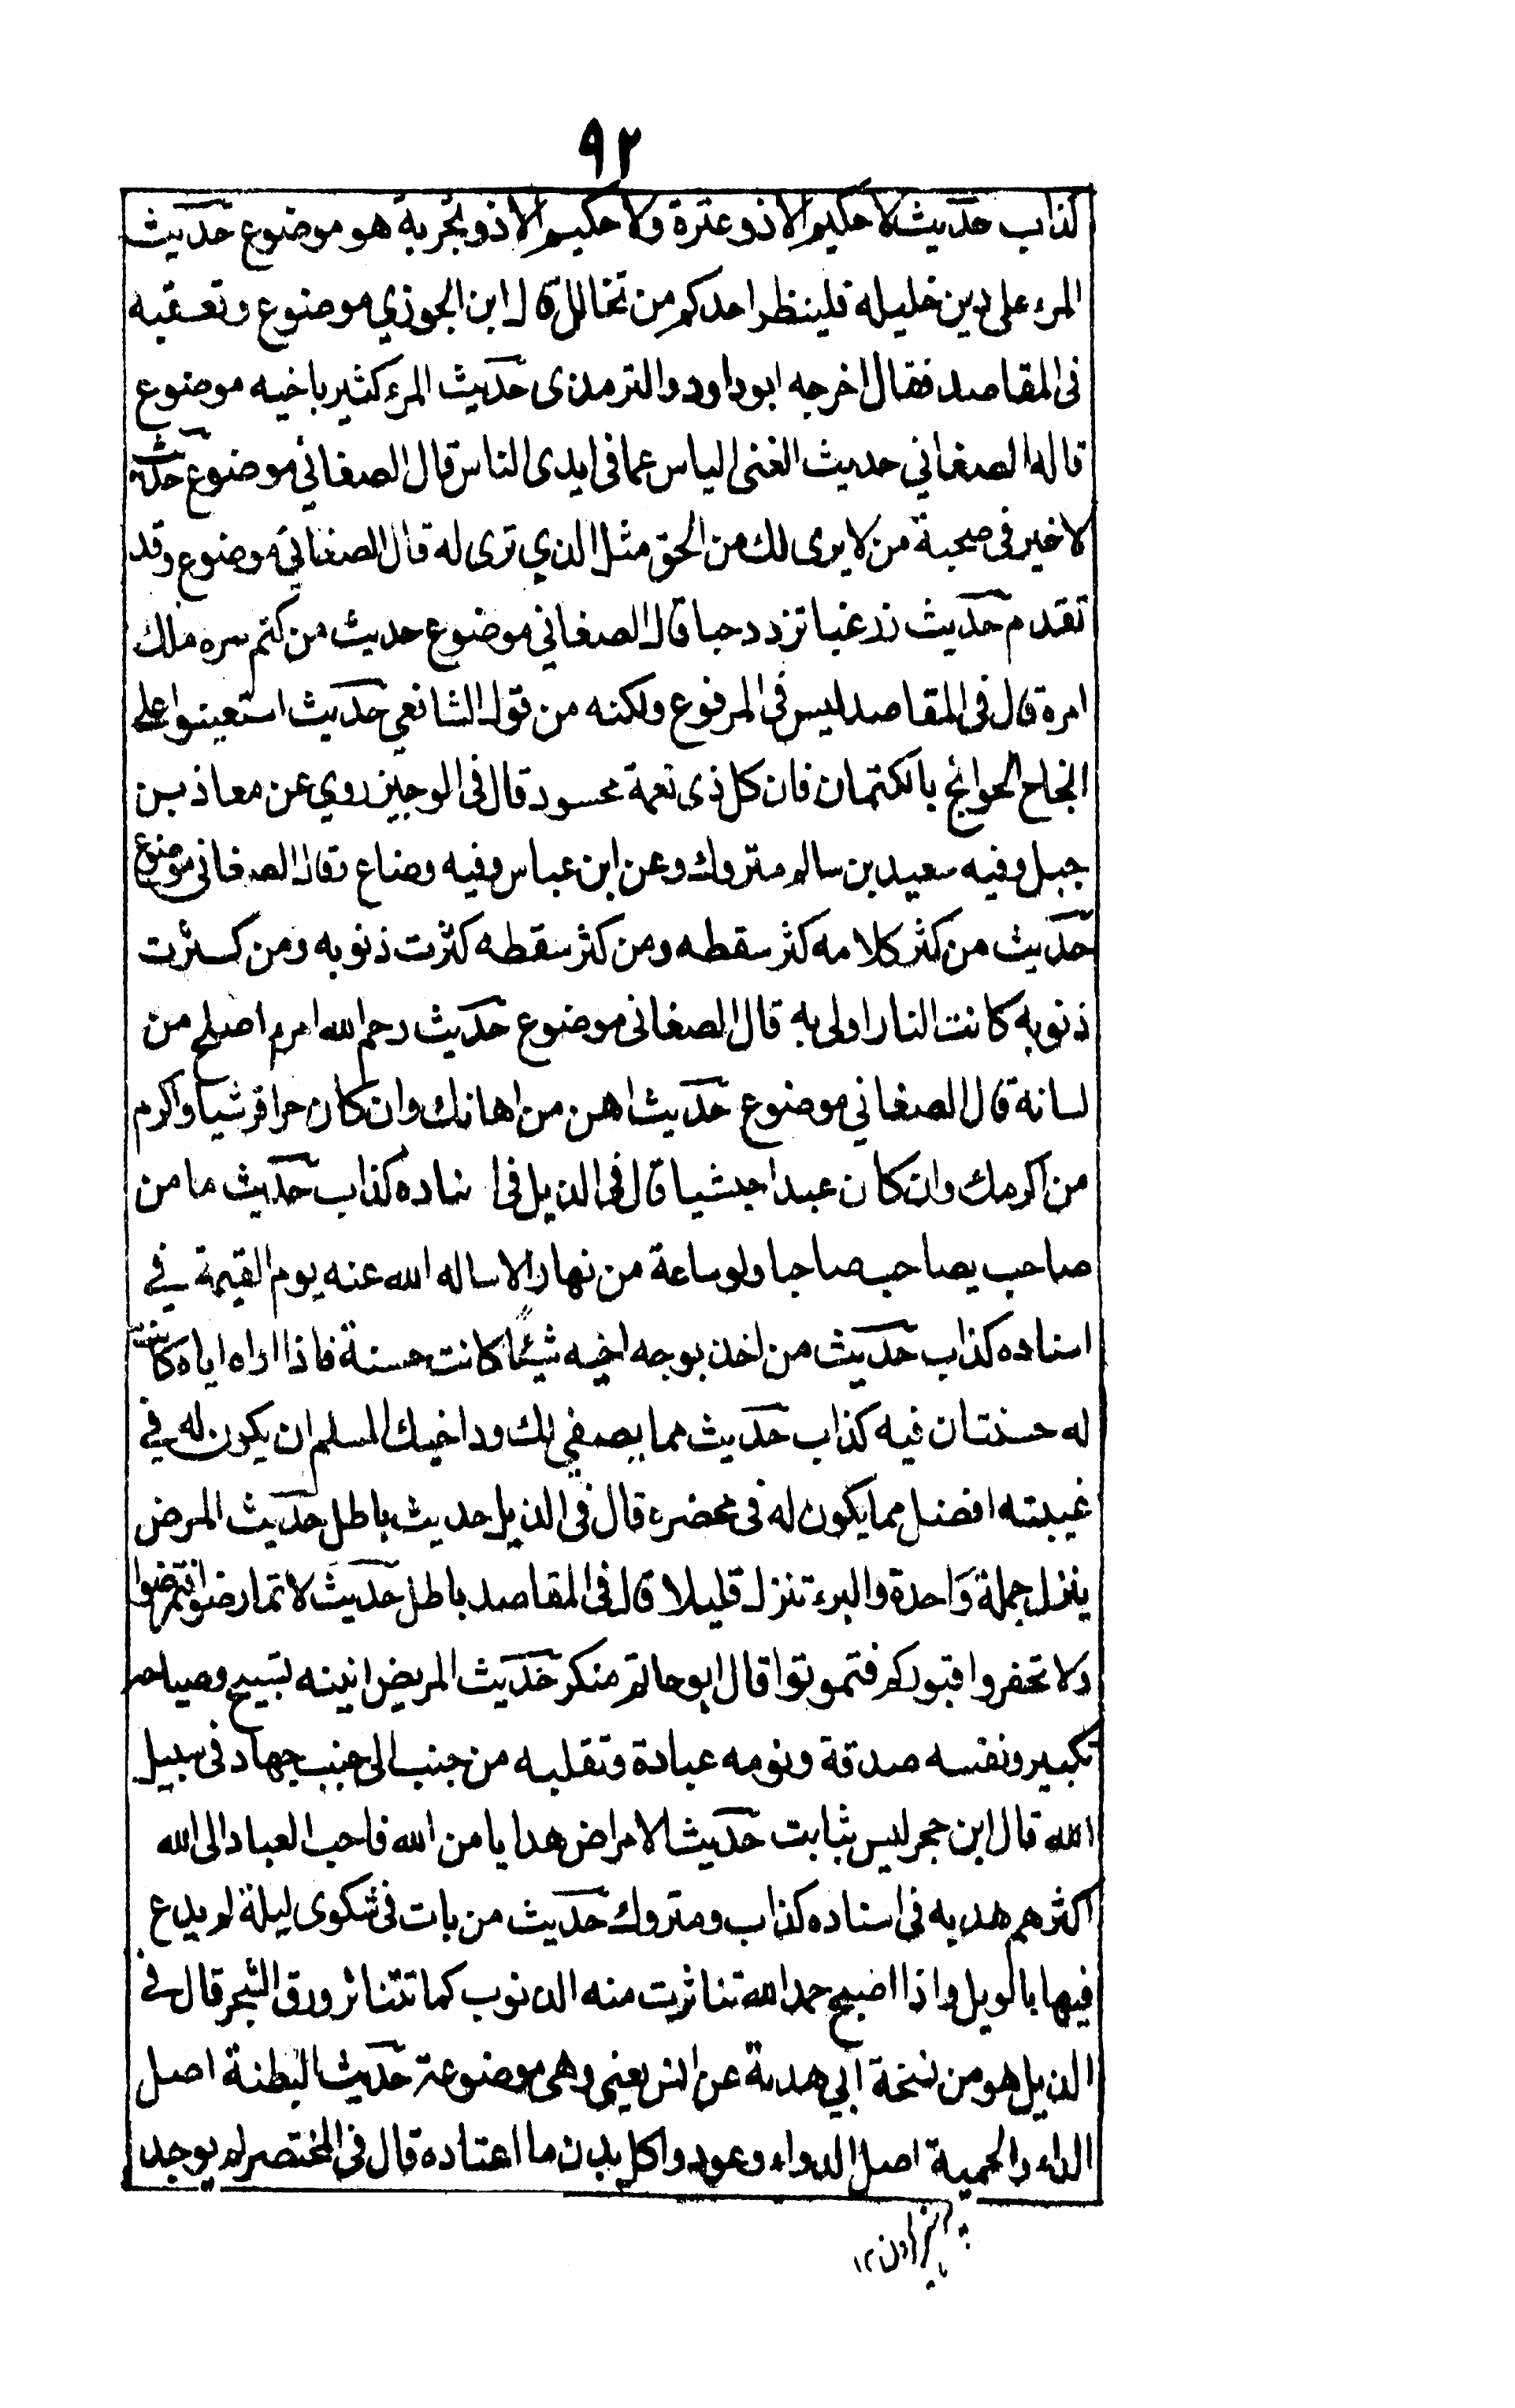 ٩٢
كذاب حديث لا حكيم الا ذو عثرة ولا حكيم الا ذو تجربة هو موضوع حديث
المرء على دين خليله فلينظر احدكم من تخالل قال ابن الجوزي موضوع وتعقبه
في المقاصد فقال اخرجه ابو داود والترمذى حديث المرء كثير باخيه موضوع
قاله الصغاني حديث الغنى الياس عما فى ايدى الناس قال الصغاني موضوع حديث
لا خير فى صحبة من لا يرى لك من الحق مثل الذي ترى له قال الصغاني موضوع وقد
تقدم حديث زر غبا تزدد حبا قال الصغاني موضوع حديث من كتم سره ملك
امره قال فى المقاصد ليس فى المرفوع ولكنه من قول الشافعي حديث استعينوا على
انجاح الحوائج بالكتمان فان كل ذى نعمة محسود قال فى الوجيز روي عن معاذ بن
جبل وفيه سعيد بن سالم متروك وعن ابن عباس وفيه وضاع وقال الصغانى موضوع
حديث من كثر كلامه كثر سقطه ومن كثر سقطه كثرت ذنوبه ومن كثرت
ذنوبه كانت النار اولى به قال الصغانى موضوع حديث رحم الله امرء اصلح من
لسانه قال الصغاني موضوع حديث اهن من اهانك وان كان حرا قرشيا واكرم
من اكرمك وان كان عبدا حبشيا قال فى الذيل فى اسناده كذاب حديث ما من
صاحب يصاحب صاحبا ولو ساعة من نهار الا ساله الله عنه يوم القيمة في
اسناده كذاب حديث من اخذ بوجه اخيه شيئا كانت حسنة فاذا اراه اياه كانت
له حسنتان فيه كذاب حديث مما يصفي لك ود اخيك المسلم ان يكون له في
غيبته افضل مما يكون له فى محضره قال فى الذيل حديث باطل حديث المرض
ينزل جملة واحدة والبرء تنزل قليلا قال فى المقاصد باطل حديث لا تمارضوا فتمرضوا
ولا تحفروا قبوركم فتموتوا قال ابو حاتم منكر حديث المريض انينه تسبيح وصياحه
تكبير ونفسه صدقة ونومه عبادة وتقلبه من جنب الى جنب جهاد فى سبيل
الله قال ابن حجر ليس بثابت حديث الامراض هدايا من الله فاحب العباد الى الله
اكثرهم هديه فى اسناده كذاب ومتروك حديث من بات فى شكوى ليلة لم يدع
فيها بالويل واذا اصبح حمد الله تناثرت منه الذنوب كما تتناثر ورق الشجر قال في
الذيل هو من نسخة ابي هدبة عن انس يعني وهى موضوعة حديث البطنة اصل
الداء والحمية اصل الدواء وعودوا كل بدن ما اعتاده قال فى المختصر لم يوجد